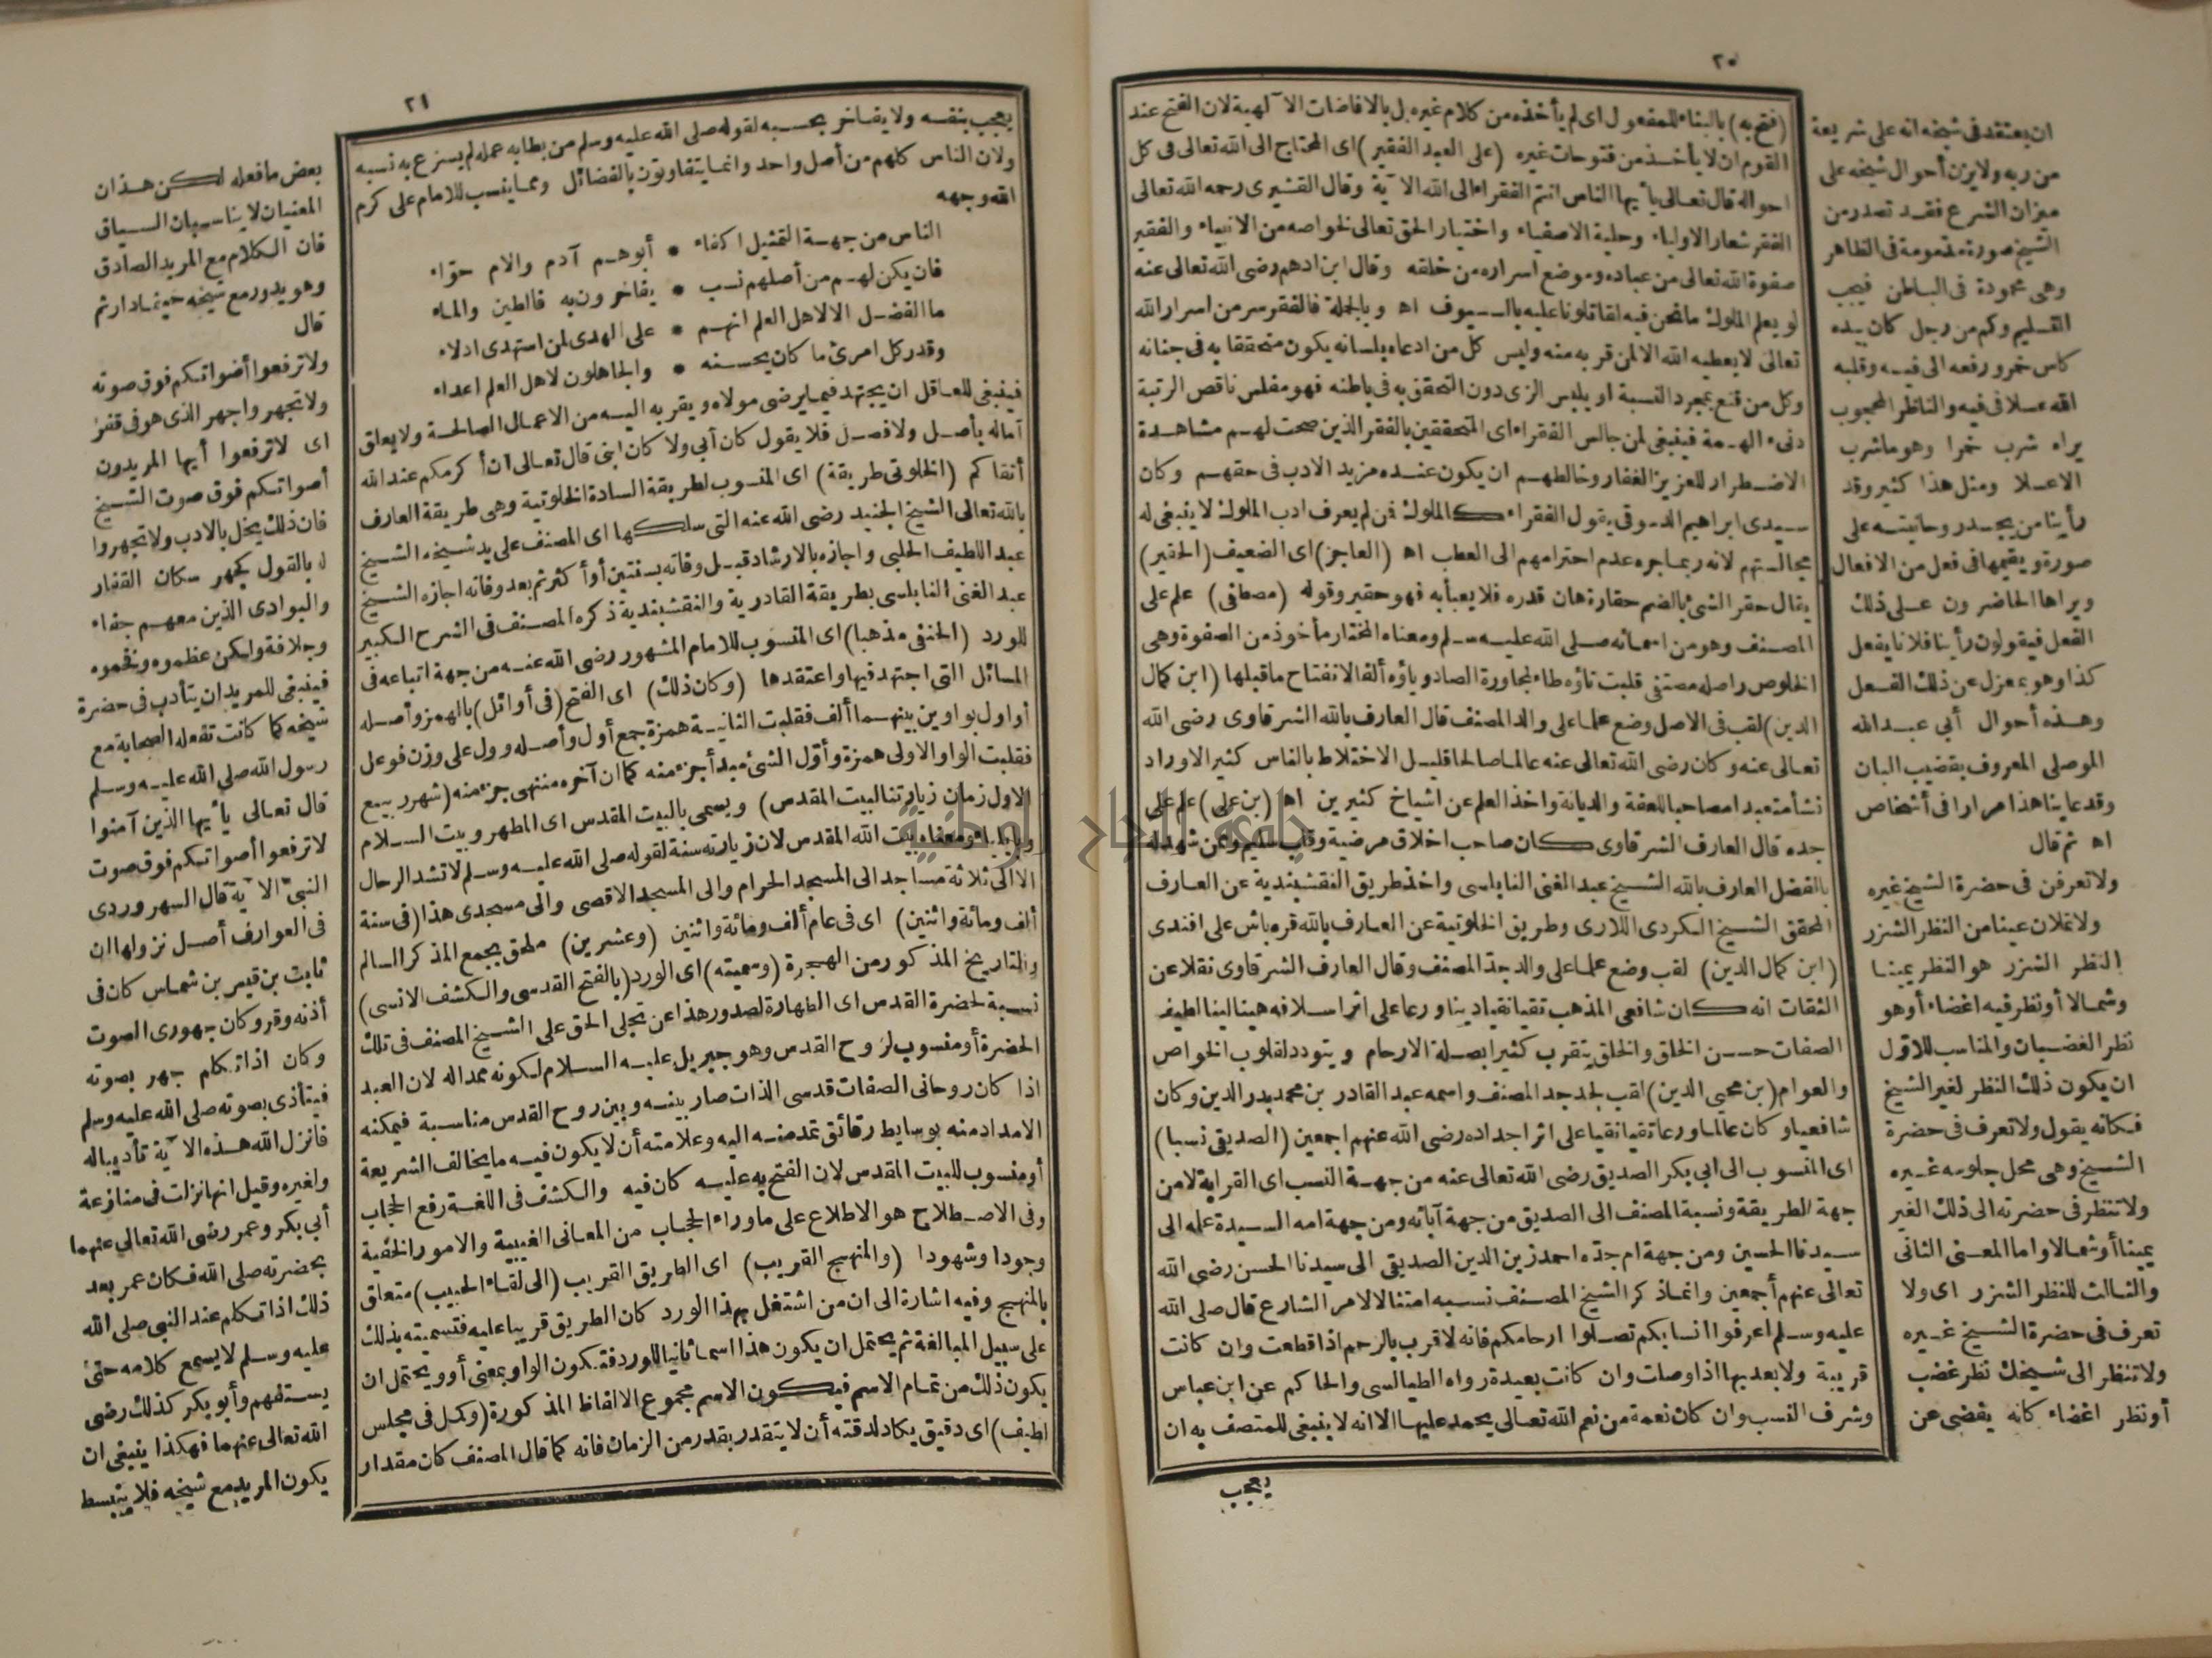 ٢٠
(فتح به) بالبناء للمفعول اى لم يأخذه من كلام غيره بل بالافاضات الآلهية لان الفتح عند
القوم ان لا يأخذ من فتوحات غيره (على العبد الفقير) اى المحتاج الى الله تعالى فى كل
احواله قال تعالى يا أيها الناس انتم الفقراء الى الله الآية وقال القشيرى رحمه الله تعالى
الفقر شعار الاولياء وحلية الاصفياء واختيار الحق تعالى لخواصه من الانبياء والفقير
صفوة الله تعالى من عباده وموضع اسراره من خلقه وقال ابن ادهم رضى الله تعالى عنه
لو يعلم الملوك ما نحن فيه لقاتلونا عليه بالسيوف اه وبالجملة فالفقر سر من اسرار الله
تعالى لا يعطيه الله الا لمن قربه منه وليس كل من ادعاه بلسانه يكون متحققا به فى جنانه
وكل من قنع بمجرد النسبة او بلبس الزى دون التحقق به فى باطنه فهو مفلس ناقص الرتبة
دنىء الهمة فينبغى لمن جالس الفقراء اى المتحققين بالفقر الذين صحت لهم مشاهدة
الاضطرار للعزيز الغفار وخالطهم ان يكون عنده مزيد الادب فى حقهم وكان
سيدى ابراهيم الدسوقى يقول الفقراء كالملوك فمن لم يعرف ادب الملوك لا ينبغى له
مجالستهم لانه ربما جره عدم احترامهم الى العطب اه (العاجز) اى الضعيف (الحقير)
يقال حقر الشئ بالضم حقارة هان قدره فلا يعبأ به فهو حقير وقوله (مصطفى) علم على
المصنف وهو من اسمائه صلى الله عليه وسلم ومعناه المختار مأخوذ من الصفوة وهى
الخلوص واصله مصتفى قلبت تاؤه طاء لمجاورة الصاد وياؤه ألفا لانفتاح ما قبلها (ابن كمال
الدين) لقب فى الاصل وضع علما على والد المصنف قال العارف بالله الشرقاوى رضى الله
تعالى عنه وكان رضى الله تعالى عنه عالما صالحا قليل الاختلاط بالناس كثير الاوراد
نشأ متعبدا مصاحبا للعفة والديانة واخذ العلم عن اشياخ كثيرين اه (بن على) علم على
جده قال العارف الشرقاوى كان صاحب اخلاق مرضية وقلب سليم وممن شهد له
بالفضل العارف بالله الشيخ عبد الغنى النابلسى واخذ طريق النقشبندية عن العارف
المحقق الشيخ الكردى اللارى وطريق الخلوتية عن العارف بالله قره باش على افندى
(ابن كمال الدين) لقب وضع علما على والد جد المصنف وقال العارف الشرقاوى نقلا عن
الثقات انه كان شافعى المذهب تقيا نقيا دينا ورعا على اثر اسلافه هينا لينا لطيف
الصفات حسن الخلق والخلق يتقرب كثيرا بصلة الارحام ويتودد لقلوب الخواص
والعوام (بن محيى الدين) لقب لجد جد المصنف واسمه عبد القادر بن محمد بدر الدين وكان
شافعيا وكان عالما ورعا تقيا نقيا على اثر اجداده رضى الله عنهم اجمعين (الصديقى نسبا)
اى المنسوب الى ابى بكر الصديق رضى الله تعالى عنه من جهة النسب اى القرابة لا من
جهة الطريقة ونسبة المصنف الى الصديق من جهة آبائه ومن جهة امه السيدة علما الى
سيدنا الحسين ومن جهة ام جده احمد زين الدين الصديقى الى سيدنا الحسن رضى الله
تعالى عنهم أجمعين وانما ذكر الشيخ المصنف نسبه امتثالا لامر الشارع قال صلى الله
عليه وسلم اعرفوا انسابكم تصلوا ارحامكم فانه لا قرب بالرحم اذا قطعت وان كانت
قريبة ولا بعد بها اذا وصلت وان كانت بعيدة رواه الطيالسى والحاكم عن ابن عباس
وشرف النسب وان كان نعمة من نعم الله تعالى يحمد عليها الا انه لا ينبغى للمتصف به ان
يعجب
ان يعتقد فى شيخه انه على شريعة
من ربه ولا يزن أحوال شيخه على
ميزان الشرع فقد تصدر من
الشيخ صورة مذمومة فى الظاهر
وهى محمودة فى الباطن فيجب
التسليم وكم من رجل كان بيده
كاس خمر ورفعه الى فيه وقلبه
الله عسلا فى فيه والناظر المحجوب
يراه شرب خمرا وهو ما شرب
الا عسلا ومثل هذا كثير وقد
رأينا من يجسد روحانيته على
صورة ويقيمها فى فعل من الافعال
ويراها الحاضرون على ذلك
الفعل فيقولون رأينا فلانا يفعل
كذا وهو بمعزل عن ذلك الفعل
وهذه أحوال أبى عبد الله
الموصلى المعروف بقضيب البان
وقد عاينا هذا مرارا فى أشخاص
اه ثم قال
ولا تعرفن فى حضرة الشيخ غيره
ولا تملان عينا من النظر الشزر
النظر الشزر هو النظر يمينا
وشمالا أو نظر فيه اغضاء أو هو
نظر الغضبان والمناسب للاول
ان يكون ذلك النظر لغير الشيخ
فكانه يقول ولا تعرف فى حضرة
الشيخ وهى محل جلوسه غيره
ولا تنظر فى حضرته الى ذلك الغير
يمينا أو شمالا واما المعنى الثانى
والثالث للنظر الشزر اى ولا
تعرف فى حضرة الشيخ غيره
ولا تنظر الى شيخك نظر غضب
أو نظر اغضاء كانه يقضى عن
٢١
يعجب بنفسه ولا يفاخر بحسبه لقوله صلى الله عليه وسلم من بطأ به عمله لم يسرع به نسبه
ولان الناس كلهم من أصل واحد وانما يتفاوتون بالفضائل ومما ينسب للامام على كرم
الله وجهه
الناس من جهة التمثيل اكفاء * أبوهم آدم والام حواء
فان يكن لهم من أصلهم نسب * يفاخرون به فالطين والماء
ما الفضل الا لاهل العلم انهم * على الهدى لمن استهدى ادلاء
وقدر كل امرئ ما كان يحسنه * والجاهلون لاهل العلم اعداء
فينبغى للعاقل ان يجتهد فيما يرضى مولاه ويقربه اليه من الاعمال الصالحة ولا يعلق
آماله بأصل ولا فصل فلا يقول كان أبى ولا كان ابنى قال تعالى ان أكرمكم عند الله
أتقاكم (الخلوتى طريقة) اى المنسوب لطريقة السادة الخلوتية وهى طريقة العارف
بالله تعالى الشيخ الجنيد رضى الله عنه التى سلكها اى المصنف على يد شيخه الشيخ
عبد اللطيف الحلبى واجازه بالارشاد قبل وفاته بسنتين أو أكثر ثم بعد وفاته اجازه الشيخ
عبد الغنى النابلسى بطريقة القادرية والنقشبندية ذكره المصنف فى الشرح الكبير
للورد (الحنفى مذهبا) اى المنسوب للامام المشهور رضى الله عنه من جهة اتباعه فى
المسائل التى اجتهد فيها واعتقدها (وكان ذلك) اى الفتح (فى أوائل) بالهمز وأصله
أواول بواوين بينهما ألف فقلبت الثانية همزة جمع أول وأصله وول على وزن فوعل
فقلبت الواو الاولى همزة وأول الشئ مبدأ جزء منه كما ان آخره منتهى جزء منه (شهر ربيع
الاول زمان زيارتنا البيت المقدس) ويسمى بالبيت المقدس اى المطهر وبيت السلام
وبايلياء ومعناه بيت الله المقدس لان زيارته سنة لقوله صلى الله عليه وسلم لا تشد الرحال
الا الى ثلاثة مساجد الى المسجد الحرام والى المسجد الاقصى والى مسجدى هذا (فى سنة
ألف ومائة واثنين) اى فى عام ألف ومائة واثنين (وعشرين) ملحق بجمع المذكر السالم
والتاريخ المذكور من الهجرة (وسميته) اى الورد (بالفتح القدسى والكشف الانسى)
نسبة لحضرة القدس اى الطهارة لصدور هذا عن تجلى الحق على الشيخ المصنف فى تلك
الحضرة أو منسوب لروح القدس وهو جبريل عليه السلام لكونه ممدا له لان العبد
اذا كان روحانى الصفات قدسى الذات صار بينه وبين روح القدس مناسبة فيمكنه
الامداد منه بوسايط رقائق تمد منه اليه وعلامته أن لا يكون فيه ما يخالف الشريعة
أو منسوب للبيت المقدس لان الفتح به عليه كان فيه والكشف فى اللغة رفع الحجاب
وفى الاصطلاح هو الاطلاع على ما وراء الحجاب من المعانى الغيبية والامور الخفية
وجودا وشهودا (والمنهج القريب) اى الطريق القريب (الى لقاء الحبيب) متعلق
بالمنهج وفيه اشارة الى ان من اشتغل بهذا الورد كان الطريق قريبا عليه فتسميته بذلك
على سبيل المبالغة ثم يحتمل ان يكون هذا اسما ثانيا للورد فتكون الواو بمعنى أو ويحتمل ان
يكون ذلك من تمام الاسم فيكون الاسم مجموع الالفاظ المذكورة (وكمل فى مجلس
لطيف) اى دقيق يكاد لدقته أن لا يتقدر بقدر من الزمان فانه كما قال المصنف كان مقدار
بعض ما فعله لكن هذان
المعنيان لا يناسبان السياق
فان الكلام مع المريد الصادق
وهو يدور مع شيخه حيثما دار ثم
قال
ولا ترفعوا أضواتكم فوق صوته
ولا تجهروا جهر الذى هو فى قفر
اى لا ترفعوا أيها المريدون
أصواتكم فوق صوت الشيخ
فان ذلك يخل بالادب ولا تجهروا
له بالقول كجهر سكان القفار
والبوادى الذين معهم جفاء
وجلافة ولكن عظموه وفخموه
فينبغى للمريد ان يتأدب فى حضرة
شيخه كما كانت تفعله الصحابة مع
رسول الله صلى الله عليه وسلم
قال تعالى يا أيها الذين آمنوا
لا ترفعوا أصواتكم فوق صوت
النبى الآية قال السهروردى
فى العوارف أصل نزولها ان
ثابت بن قيس بن شماس كان فى
أذنه وقر وكان جهورى الصوت
وكان اذا تكلم جهر بصوته
فيتأذى بصوته صلى الله عليه وسلم
فانزل الله هذه الآية تأديبا له
ولغيره وقيل انها نزلت فى منازعة
أبى بكر وعمر رضى الله تعالى عنهما
بحضرته صلى الله فكان عمر بعد
ذلك اذا تكلم عند النبى صلى الله
عليه وسلم لا يسمع كلامه حتى
يستفهم وأبو بكر كذلك رضى
الله تعالى عنهما فهكذا ينبغى ان
يكون المريد مع شيخه فلا ينبسط
جامعة النجاح الوطنية